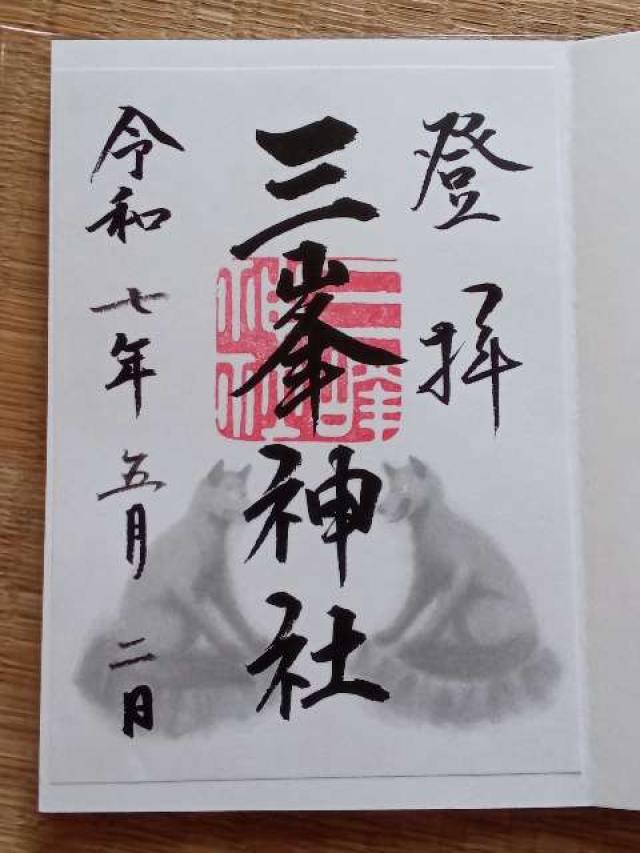 登拝
三峯神社
令和七年五月二日